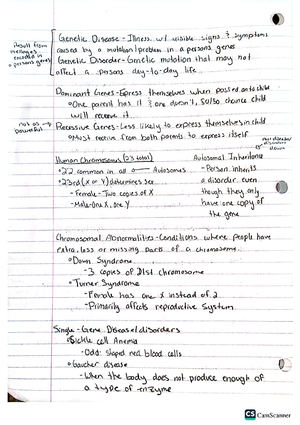 Genetic Disease - Illness w/ visible signs & symptoms
caused by a mutation/problem in a persons genes
Genetic Disorder - Genetic mutation that may not
affect a persons day-to-day life
Result from
encoded in
a persons genes
Dominant Genes - Express themselves when passed onto child
One parent has it & one doesn't, 50/50 chance child
will receive it
not as powerful
Recessive Genes - Less likely to express themselves in child
Must receive from both parents to express itself
Human Chromosomes (23 total)
22 common in all Autosomes
23rd (X or Y) determines sex
- Female - Two copies of X
- Male - One X, one Y
Autosomal Inheritance
- Person inherits
a disorder even
though they only
have one copy of
the gene
Chromosomal Abnormalities - Conditions where people have
extra, less or missing parts of a chromosome
Down Syndrome
- 3 copies of 21st chromosome
Turner Syndrome
- Female has one X instead of 2
- Primarily affects reproductive system
Single-Gene Disease/disorders
Sickle cell Anemia
- Odd shaped red blood cells
Gaucher disease
- When the body does not produce enough of
a type of enzyme
CS CamScanner